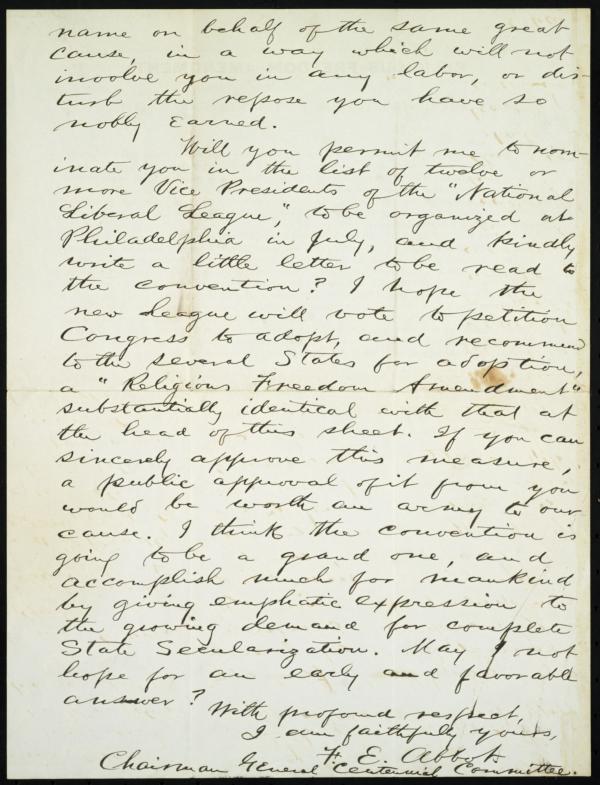 name on behalf of the same great
cause, in a way which will not
involve you in any labor, or dis-
turb the repose you have so
nobly earned.
Will you permit me to nom-
inate you in the list of twelve or
more Vice Presidents of the "National
Liberal League", to be organized at
Philadelphia in July, and kindly
write a little letter to be read to
the convention? I hope the
new League will vote to petition
Congress to adopt, and recommend
to the several States for adoption,
a "Religious Freedom Amendment"
substantially identical with that at
the head of this sheet. If you can
sincerely approve this measure,
a public approval of it from you
would be worth an army to our
cause. I think the convention is
going to be a grand one, and
accomplish much for mankind
by giving emphatic expression to
the growing demand for complete
State Secularization. May I not
hope for an early and favorable
answer?
With profound respect,
I am faithfully yours,
F. E. Abbot.
Chairman General Centennial Committee.